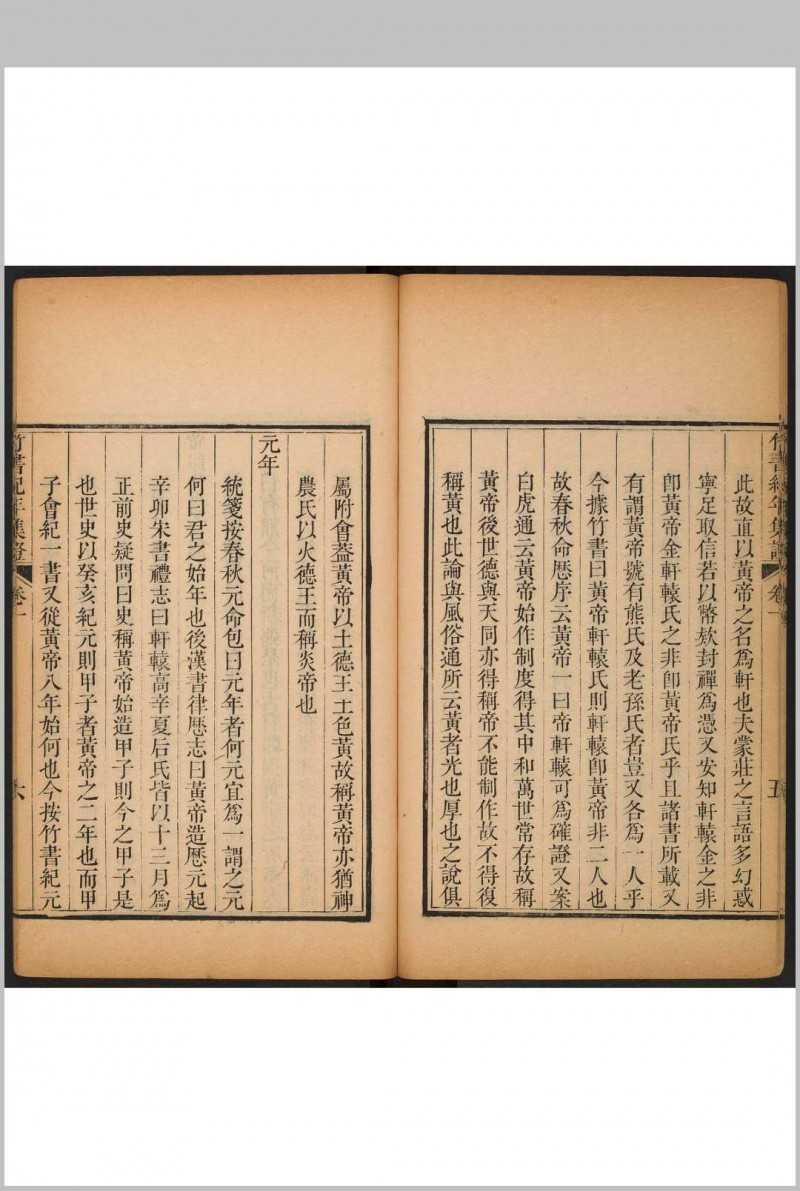 竹書紀年集證 卷一 五
此故直以黃帝之名爲軒也夫蒙莊之言語多幻惑
寧足取信若以幣欵封禪爲憑又安知軒轅金之非
卽黃帝金軒轅氏之非卽黃帝氏乎且諸書所載又
有謂黃帝號有熊氏及老孫氏者豈又各爲一人乎
今據竹書曰黃帝軒轅氏則軒轅卽黃帝非二人也
故春秋命歷序云黃帝一曰帝軒轅可爲確證又案
白虎通云黃帝始作制度得其中和萬世常存故稱
黃帝後世德與天同亦得稱帝不能制作故不得復
稱黃也此論與風俗通所云黃者光也厚也之說俱
屬附會葢黃帝以土德王土色黃故稱黃帝亦猶神
農氏以火德王而稱炎帝也
元年
統箋按春秋元命包曰元年者何元宜爲一謂之元
何曰君之始年也後漢書律歷志曰黃帝造歷元起
辛卯朱書禮志曰軒轅高辛夏后氏皆以十三月爲
正前史疑問曰史稱黃帝始造甲子則今之甲子是
也世史以癸亥紀元則甲子者黃帝之二年也而甲
子會紀一書又從黃帝八年始何也今按竹書紀元
竹書紀年集證 卷一 六